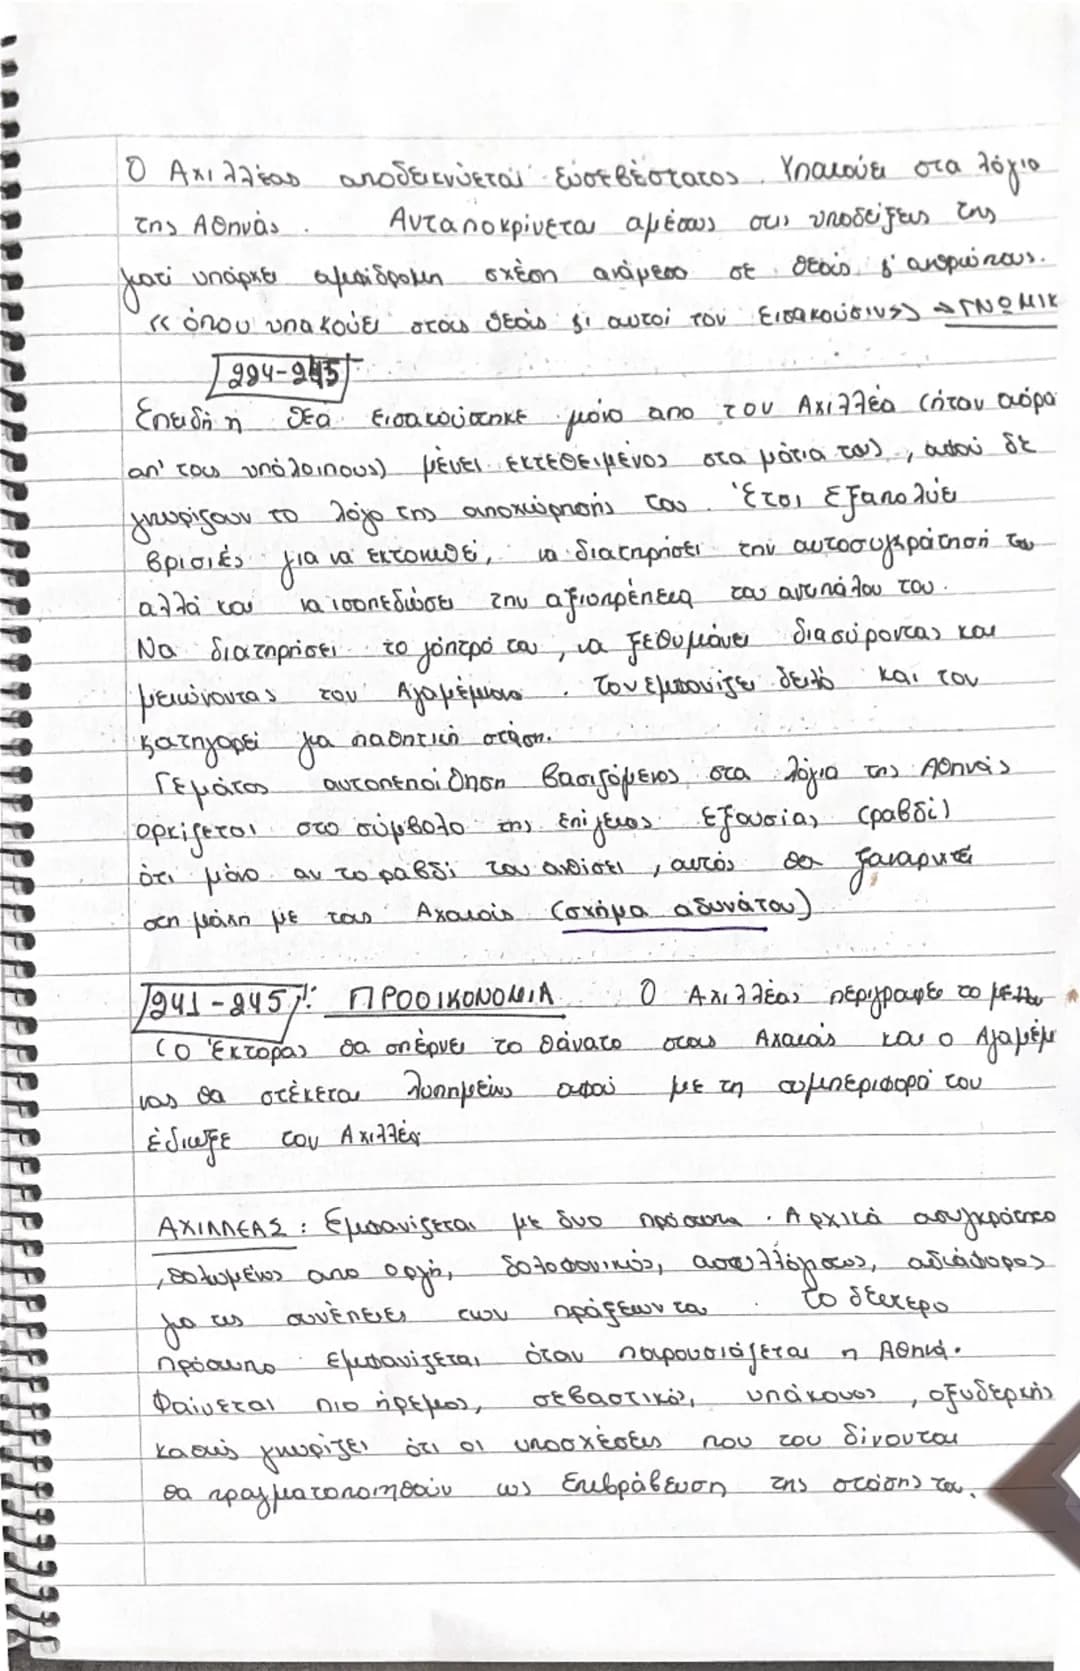 Ο Αχιλλέας αποδεικνύεται ευσεβέστατος. Υπακούει στα λόγια
της Αθηνάς. Ανταποκρίνεται αμέσως στις υποδείξεις της
γιατί υπάρχει αμφίδρομη σχέση ανάμεσα σε θεούς κ' ανθρώπους.
<< όπου υπακούει στους θεούς κι αυτοί τον εισακούσιν>> → ΓΝΩΜΙΚ
224-245
Επειδή η θεά εισακούστηκε μόνο από τον Αχιλλέα (ήταν αόρα
απ' τους υπόλοιπους) μένει εκτεθειμένος στα μάτια τους, αφού δε
γνωρίζουν το λόγο της αποχώρησής του. Έτσι εξαπολύει
βρισιές για να εκτονωθεί, να διατηρήσει την αυτοσυγκράτησή του
αλλά και να ισοπεδώσει την αξιοπρέπεια του αντιπάλου του.
Να διατηρήσει το γόητρό του, να ξεθυμάνει διασύροντας και
μειώνοντας τον Αγαμέμνονα. Τον εμφανίζει δειλό και τον
κατηγορεί για παθητική στάση.
Γεμάτος αυτοπεποίθηση βασιζόμενος στα λόγια της Αθηνάς
ορκίζεται στο σύμβολο της επίγειας εξουσίας (ραβδί)
ότι μόνο αν το ραβδί του ανθίσει, αυτός θα ξαναρχεί
στη μάχη με τους Αχαιούς (σχήμα αδυνάτου)
241-245: ΠΡΟΟΙΚΟΝΟΜΙΑ Ο Αχιλλέας περιγράφει το μελλο
(ο Έκτορας θα σπέρνει το θάνατο στους Αχαιούς και ο Αγαμέμ
νας θα στέκεται λυπημένος αφού με τη συμπεριφορά του
έδιωξε τον Αχιλλέα
ΑΧΙΛΛΕΑΣ: Εμφανίζεται με δυο πρόσωπα. Αρχικά ασυγκράτητο
, θολωμένος από οργή, δολοφονικός, ασυλλόγιστος, αδιάφορος
για τις συνέπειες των πράξεων του. Το δεύτερο
πρόσωπο εμφανίζεται όταν παρουσιάζεται η Αθηνά.
Φαίνεται πιο ήρεμος, σεβαστικός, υπάκουος, οξυδερκής
καθώς γνωρίζει ότι οι υποσχέσεις που του δίνονται
θα πραγματοποιηθούν ως επιβράβευση της στάσης του.